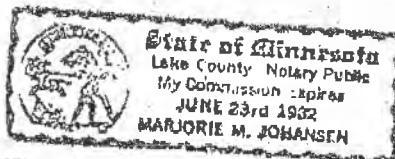 State of Minnesota
Lake County Notary Public
My Commission Expires
JUNE 23rd 1932
MARJORIE M. JOHANSEN